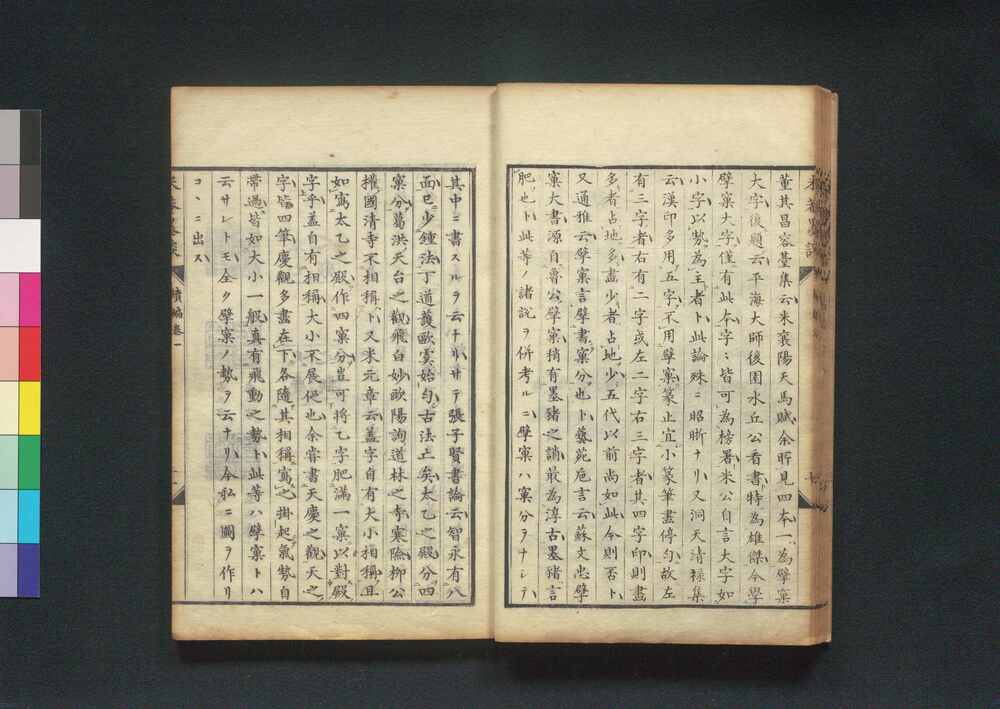 董其昌容臺集云米襄陽天馬賦余所見四本一為擘窠
大字後題云平海大師後園水丘公看書特為雄傑今學
擘窠大字僅有此本字々皆可為榜署米公自言大字如
小字以勢為主者ト此論殊ニ昭晰ナリ又洞天清祿集
云漢印多用五字不用擘窠篆止宜小篆筆畫停匀故左
有三字者右有二字或左二字右三字者其四字印則畫
多者占地多畫少者占地少五代以前尚如此今則否ト
又通雅云擘窠言擘書窠分也ト藝苑巵言云蘇文忠擘
窠大書源自魯公擘窠稍有墨豬之誚最為淳古墨豬言
肥也ト此等ノ諸說ヲ併考ルニ擘窠ハ窠分ヲナシテ
其中ニ書スルヲ云ナリサテ張子賢書論云智永有八
面已少鍾法丁道護歐虞始匀古法亡矣太乙之殿分四
窠分葛洪天台之觀飛白妙歐陽詢道林之寺寒險柳公
權國清寺不相揖ト又米元章云蓋字自有大小相稱且
如寫太乙之殿作四窠分豈可將乙字肥滿一窠以對殿
字乎蓋自有相稱大小不展促也余嘗書天慶之觀天之
字皆四筆慶觀多畫在下各隨其相稱寫之掛起氣勢自
帶過皆如大小一般真有飛動之勢ト此等ハ擘窠トハ
云サレトモ全ク擘窠ノ勢ヲ云ナリ今私ニ圖ヲ作リ
コヽニ出ス
續編卷一